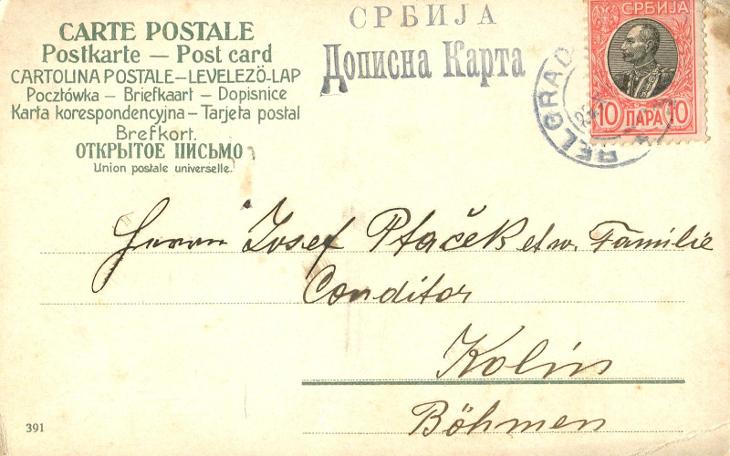 CARTE POSTALE
Postkarte — Post card
CARTOLINA POSTALE—LEVELEZÖ-LAP
Pocztówka — Briefkaart — Dopisnice
Karta korespondencyjna — Tarjeta postal
Brefkort.
ОТКРЫТОЕ ПИСЬМО
Union postale universelle.
СРБИЈА
Дописна Карта
СРБИЈА
10 ПАРА 10
BELGRAD
Herrn Josef Ptaček et w. Familie
Conditor
Kolin
Böhmen
391